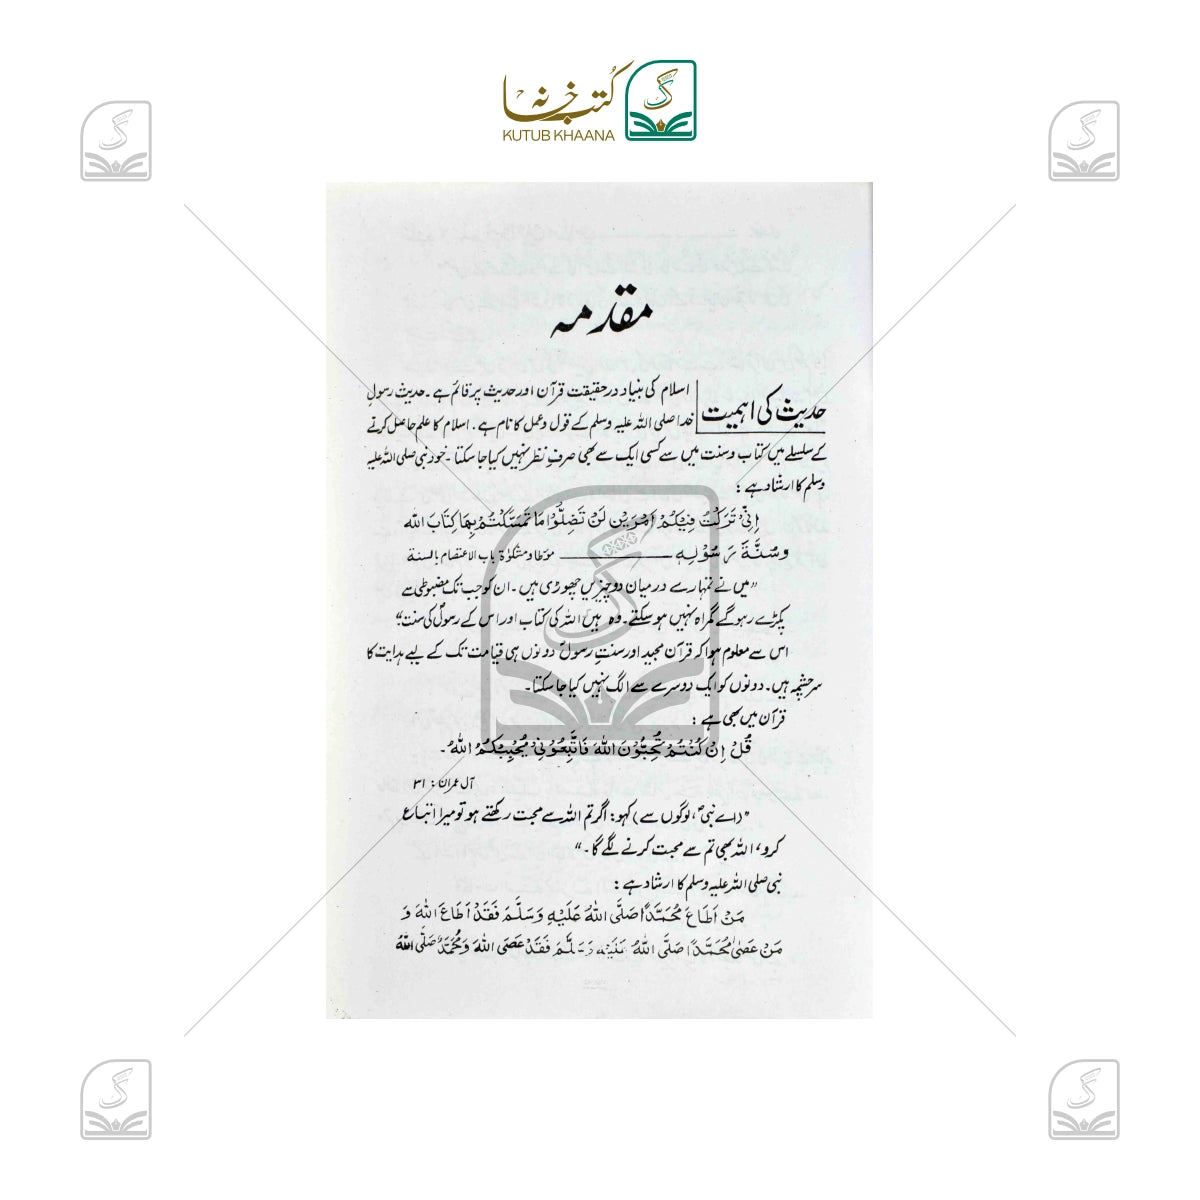 کتب خانہ
KUTUB KHAANA
مقدمہ
حدیث کی اہمیت
اسلام کی بنیاد درحقیقت قرآن اور حدیث پر قائم ہے۔ حدیث رسولِ
خدا صلی اللہ علیہ وسلم کے قول و عمل کا نام ہے۔ اسلام کا علم حاصل کرنے
کے سلسلے میں کتاب و سنت میں سے کسی ایک سے بھی صرفِ نظر نہیں کیا جا سکتا۔ خود نبی صلی اللہ علیہ
وسلم کا ارشاد ہے:
اِنِّیْ تَرَكْتُ فِيْكُمْ اَمْرَيْنِ لَنْ تَضِلُّوْا مَا تَمَسَّكْتُمْ بِهِمَا كِتَابَ اللّٰه
وَسُنَّةَ رَسُوْلِهٖ ـــــــ مؤطا و مشکوٰۃ باب الاعتصام بالسنۃ
"میں نے تمہارے درمیان دو چیزیں چھوڑی ہیں۔ ان کو جب تک مضبوطی سے
پکڑے رہو گے گمراہ نہیں ہو سکتے۔ وہ ہیں اللہ کی کتاب اور اس کے رسولؐ کی سنت"
اس سے معلوم ہوا کہ قرآن مجید اور سنتِ رسولؐ دونوں ہی قیامت تک کے لیے ہدایت کا
سرچشمہ ہیں۔ دونوں کو ایک دوسرے سے الگ نہیں کیا جا سکتا۔
قرآن میں بھی ہے:
قُلْ اِنْ كُنْتُمْ تُحِبُّوْنَ اللّٰهَ فَاتَّبِعُوْنِيْ يُحْبِبْكُمُ اللّٰهُ۔
آل عمران: ۳۱
"(اے نبیؐ، لوگوں سے) کہو: اگر تم اللہ سے محبت رکھتے ہو تو میرا اتباع
کرو، اللہ بھی تم سے محبت کرنے لگے گا۔"
نبی صلی اللہ علیہ وسلم کا ارشاد ہے:
مَنْ اَطَاعَ مُحَمَّدًا صَلَّى اللّٰهُ عَلَيْهِ وَسَلَّمَ فَقَدْ اَطَاعَ اللّٰهَ وَ
مَنْ عَصٰى مُحَمَّدًا صَلَّى اللّٰهُ عَلَيْهِ وَسَلَّمَ فَقَدْ عَصَى اللّٰهَ وَمُحَمَّدٌ صَلَّى اللّٰهُ